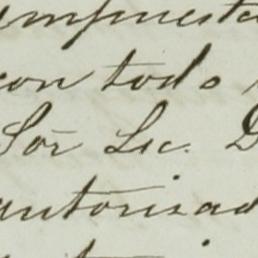 impuesta
con todo
Sor Lic. D
autorizad